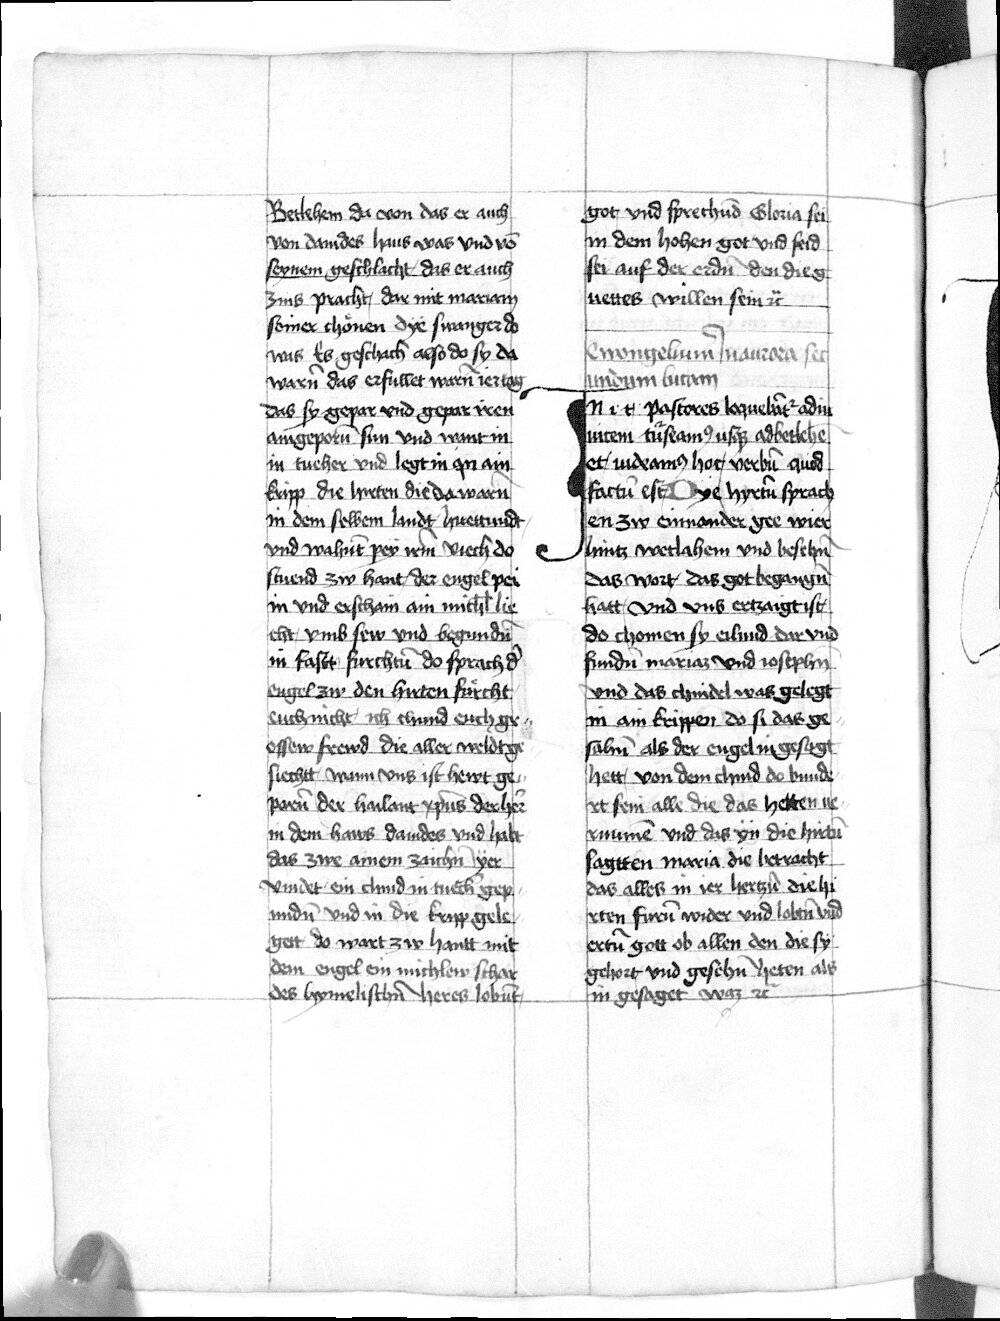 Betlehem da von das er auch
von dauides haus was vnd vō
seynem geschlacht das er auch
zins pracht / dar mit mariam
seiner chönen dye swanger do
was Es geschach also do sy da
warn̄ das erfullet warn̄ ier tag
das sy gepar vnd gepar iren
aingeporn̄ sun vnd want in
in tueher vnd legt in yn ain
kripp die hirten die da warn̄
in dem selbem landt huettundt
vnd wahnt̄ pey irm̄ viech do
stuend zw hant der engel pei
in vnd erschain ain michl lie
cht vmb sew vnd begundn̄
in fast furchtn̄ do sprach d'
engel zw den hirten fürcht
euch nicht ich chund euch gr
ossew frewd die aller weldt ge
siecht wann vns ist hewt ge
porn̄ der hailant xp̄us der her̄
in dem haws dauides vnd habt
das zwe ainem zaichn̄ yer
vindet ein chind in tuech̄ gep
undn̄ vnd in die kripp gele
gett do wart zw hantt mit
dem engel ein michlew schar
des hymelischn̄ heres lobunt̄
got vnd sprechūd Gloria sei
in dem hohen got vnd frid
sei auf der erdn̄ den die g
uettes willen sein ꝛc̄
Ewongelium̄ In aurora sec
undum lucam
In i t pastores loquebāt᷑ adin
uicem trn̄seamꝰ usqꝫ ad betlehē
et uideamꝰ hoc verbū quod
factū est Dye hyrtn̄ sprach
en zw einnander gee wier
hintz wetlahem vnd besehn̄
das wort das got begangn̄
hatt vnd vns ertzaigt ist
do chomen sy eilund dar vnd
fundn̄ mariaz vnd iosephn̄
vnd das chindel was gelegt
in ain krippen do si das ge
sahn̄ als der engel in gesagt
hett von dem chind do bunde
rt sein alle die das hetten ue
rnumē vnd das yn die hirtn̄
sagtten maria die betracht
das alles in ier hertzn̄ die hi
rten furn̄ wider vnd lobtn̄ vnd
ertn̄ gott ob allen den die sy
gehort vnd gesehn̄ heten als
in gesaget waz ꝛc̄